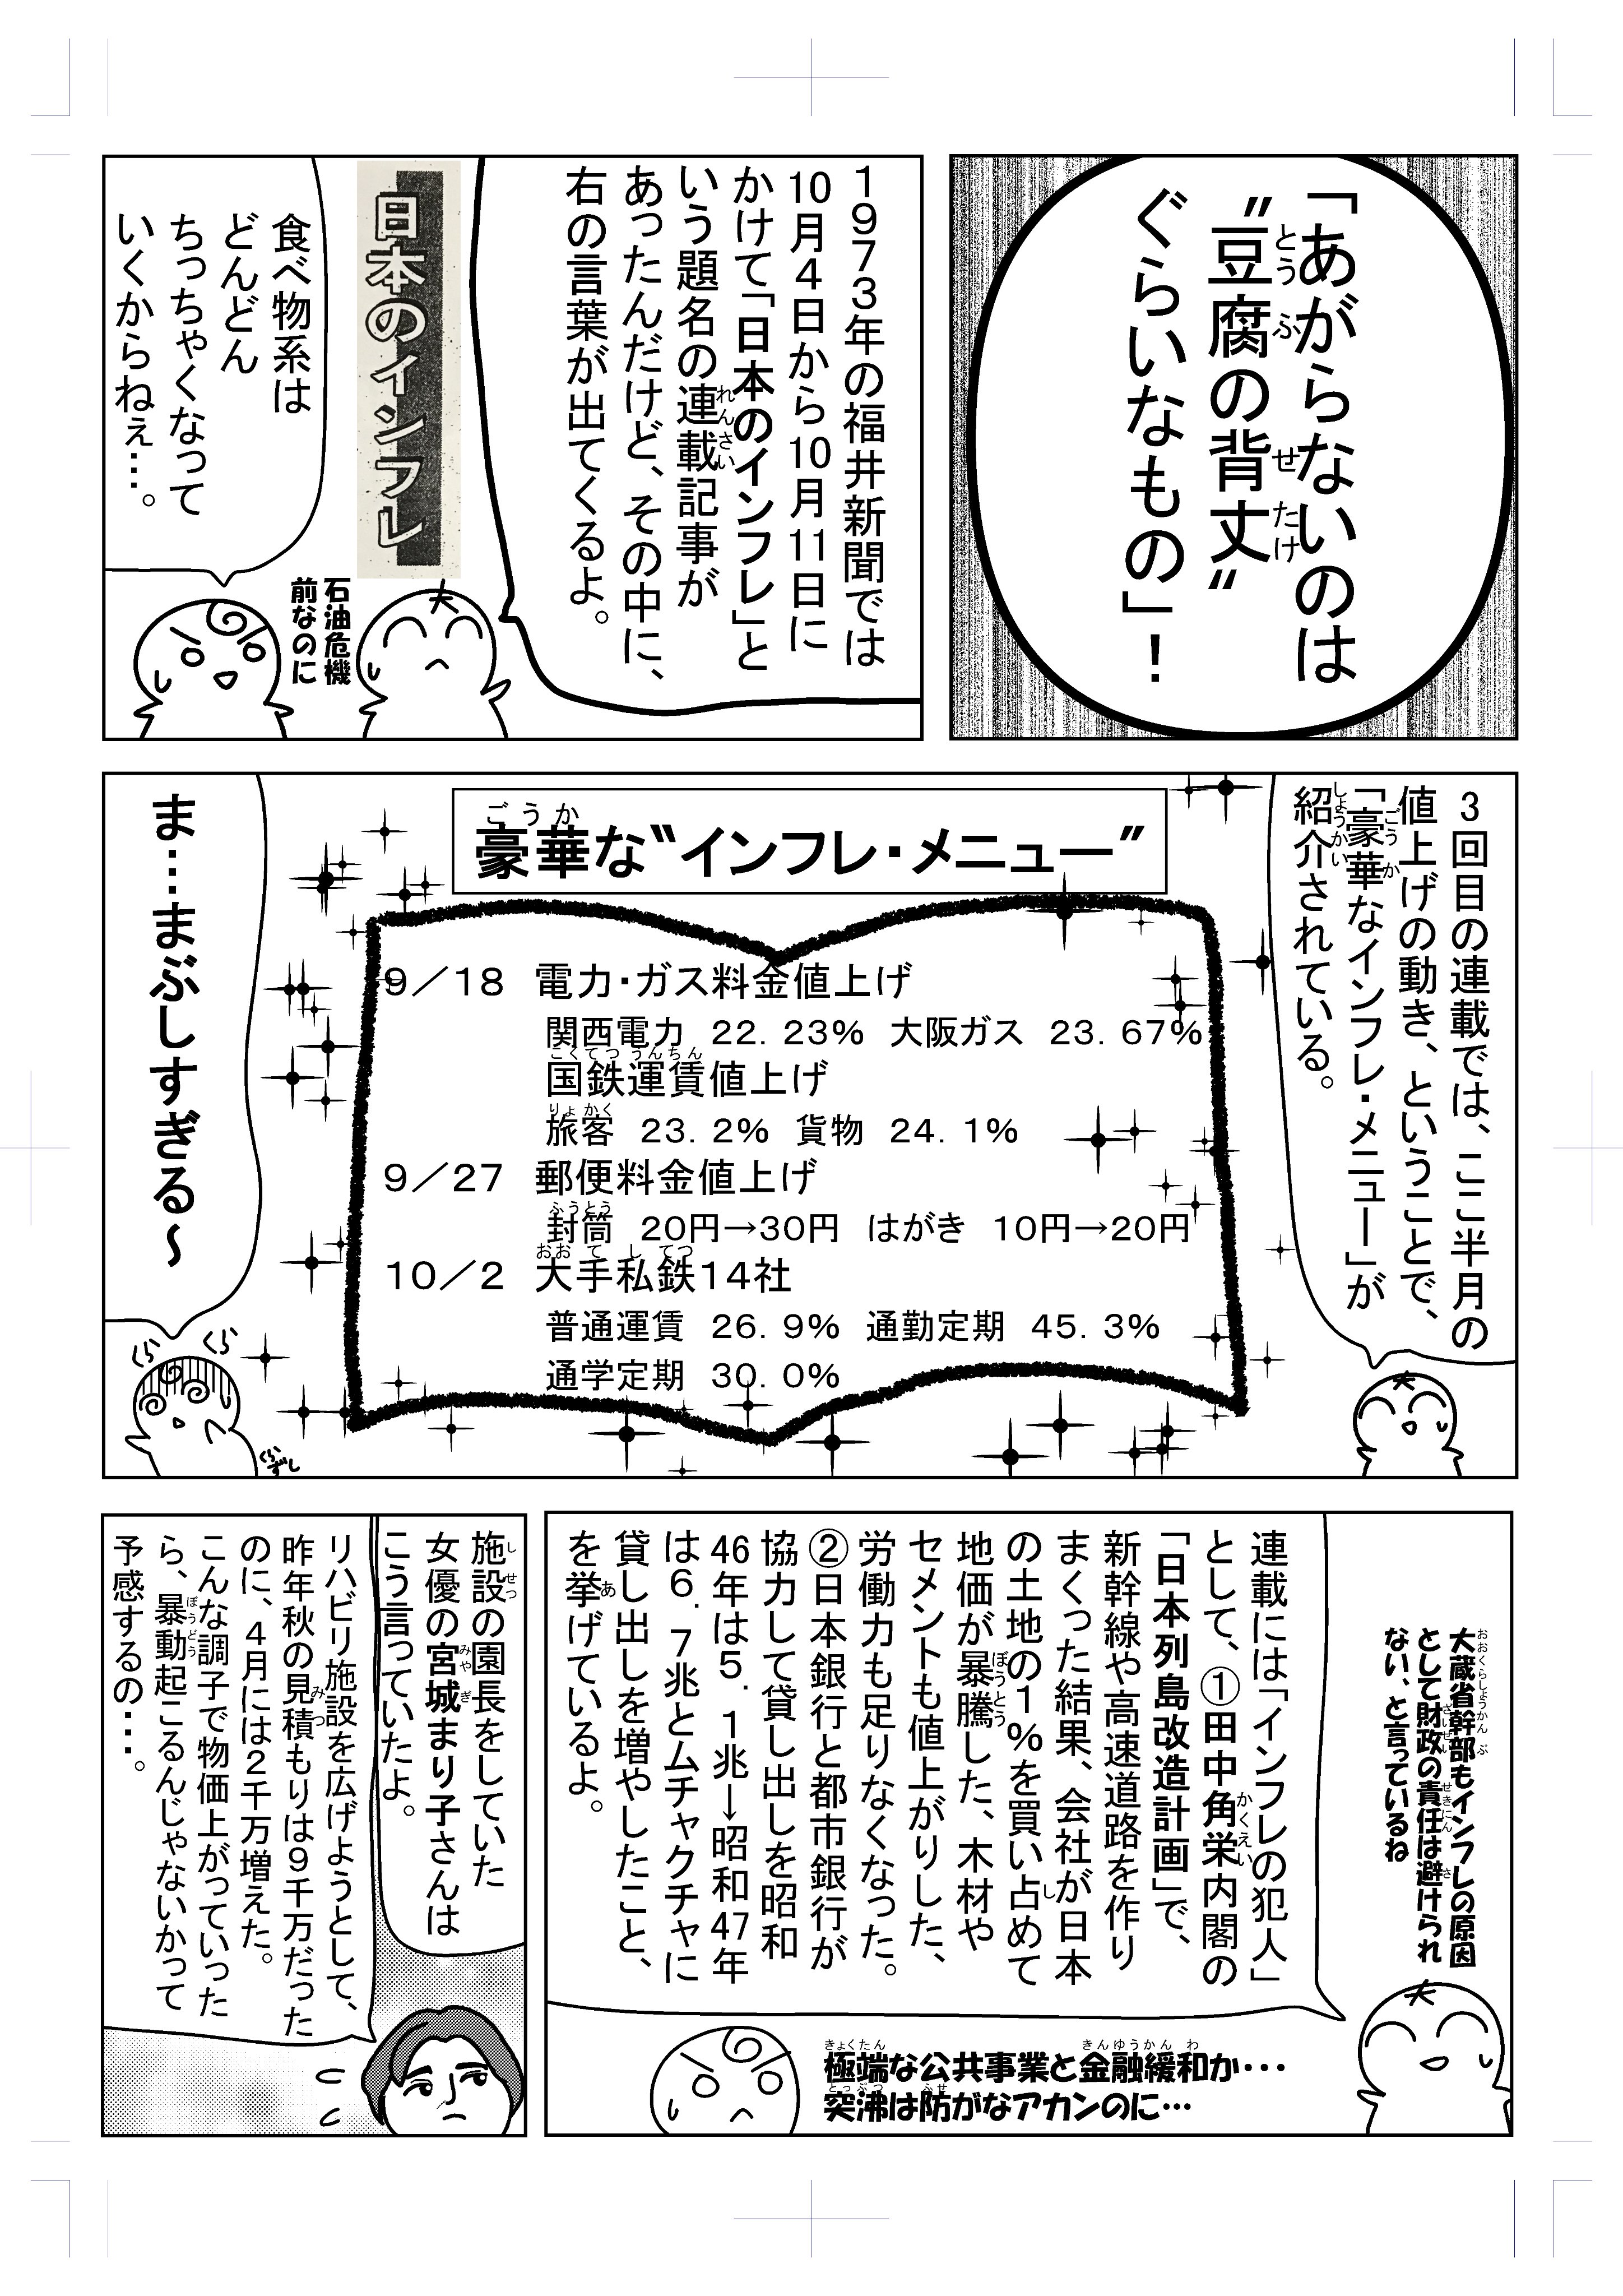 「あがらないのは
〝豆腐の背丈〟
ぐらいなもの」！
1973年の福井新聞では
10月4日から10月11日に
かけて「日本のインフレ」と
いう題名の連載記事が
あったんだけど、その中に、
右の言葉が出てくるよ。
日本のインフレ
石油危機
前なのに
食べ物系は
どんどん
ちっちゃくなって
いくからねぇ…。
3回目の連載では、ここ半月の
値上げの動き、ということで、
「豪華なインフレ・メニュー」が
紹介されている。
豪華な〝インフレ・メニュー〟
9／18 電力・ガス料金値上げ
関西電力 22.23% 大阪ガス 23.67%
国鉄運賃値上げ
旅客 23.2% 貨物 24.1%
9／27 郵便料金値上げ
封筒 20円→30円 はがき 10円→20円
10／2 大手私鉄14社
普通運賃 26.9% 通勤定期 45.3%
通学定期 30.0%
ま…まぶしすぎる～
くら
くら
くら
ずし
大蔵省幹部もインフレの原因
として財政の責任は避けられ
ない、と言っているね
連載には「インフレの犯人」
として、①田中角栄内閣の
「日本列島改造計画」で、
新幹線や高速道路を作り
まくった結果、会社が日本
の土地の1%を買い占めて
地価が暴騰した、木材や
セメントも値上がりした、
労働力も足りなくなった。
②日本銀行と都市銀行が
協力して貸し出しを昭和
46年は5.1兆→昭和47年
は6.7兆とムチャクチャに
貸し出しを増やしたこと、
を挙げているよ。
極端な公共事業と金融緩和か…
突沸は防がなアカンのに…
施設の園長をしていた
女優の宮城まり子さんは
こう言っていたよ。
リハビリ施設を広げようとして、
昨年秋の見積もりは9千万だった
のに、4月には2千万増えた。
こんな調子で物価上がっていった
ら、暴動起こるんじゃないかって
予感するの…。